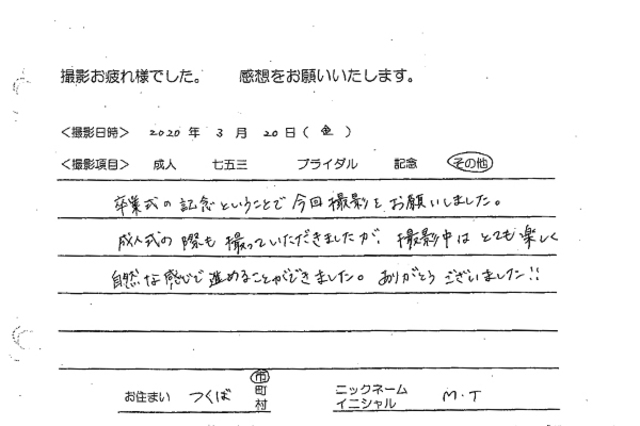 撮影お疲れ様でした。　感想をお願いいたします。
＜撮影日時＞ 2020 年 3 月 20 日（金）
＜撮影項目＞ 成人 七五三 ブライダル 記念 その他
卒業式の記念ということで今回撮影をお願いしました。
成人式の際も撮っていただきましたが、撮影中はとても楽しく
自然な感じで進めることができました。ありがとうございました!!
お住まい つくば 市
町
村
ニックネーム
イニシャル M・T